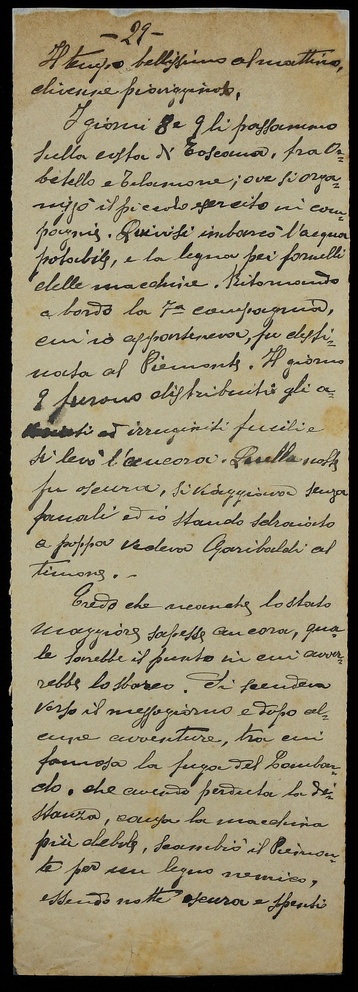 - 29 -
Il tempo bellissimo al mattino,
divenne piovigginoso.
I giorni 8 e 9 li passammo
sulla costa di Toscana, fra Or=
betello e Telamone; ove si orga=
nizzò il piccolo esercito in com=
pagnie. Quivi si imbarcò l'acqua
potabile, e la legna pei fornelli
delle macchine. Ritornando
a bordo la 7ª compagnia,
cui io apparteneva, fu desti=
nata al Piemonte. Il giorno
9 furono distribuiti gli a=
ed irruginiti fucili e
si levò l'ancora. Quella notte
fu oscura, si viaggiava senza
fanali ed io stando sdraiato
a poppa vedeva Garibaldi al
timone. -
Credo che neanche lo stato
maggiore sapesse ancora, qua=
le sarebbe il punto in cui avver=
rebbe lo sbarco. Si scendeva
verso il mezzogiorno e dopo al=
cune avventure, tra cui
famosa la fuga del Lombar=
do, che avendo perduta la di=
stanza, causa la macchina
più debole, scambiò il Piemon=
te per un legno nemico,
essendo notte oscura e spenti